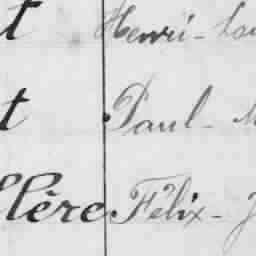 t Henri-
t Paul-
llère Félix-